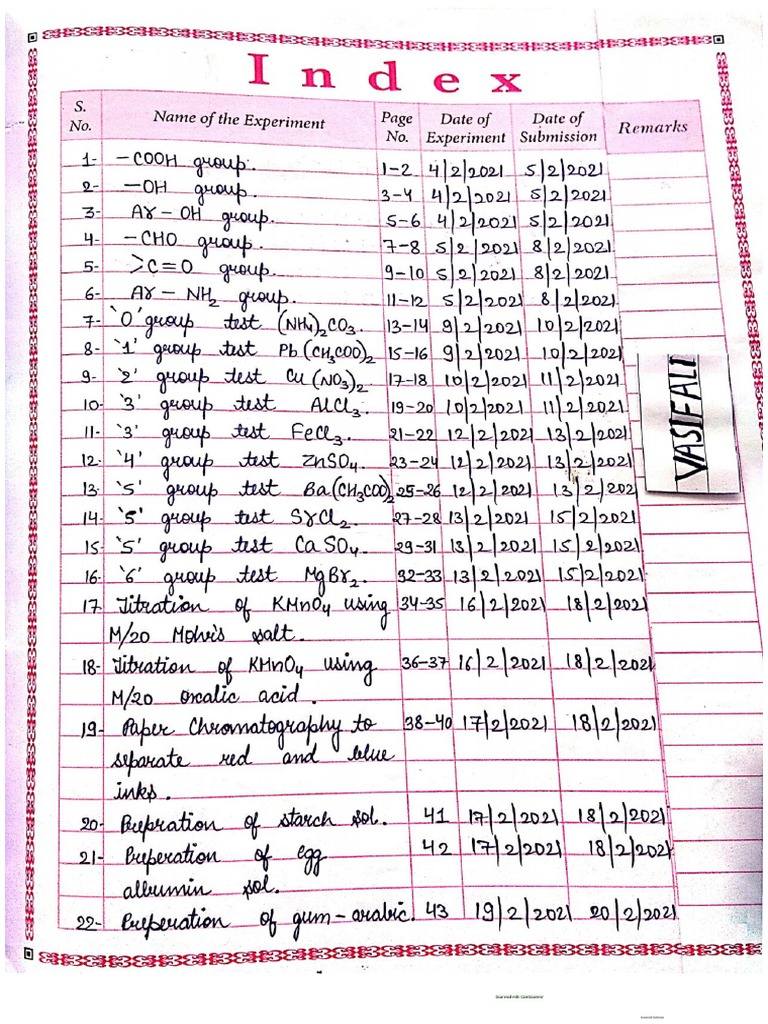 Index
S. No. Name of the Experiment Page No. Date of Experiment Date of Submission Remarks
1- -COOH group. 1-2 4/2/2021 5/2/2021
2- -OH group. 3-4 4/2/2021 5/2/2021
3- Ar-OH group. 5-6 4/2/2021 5/2/2021
4- -CHO group. 7-8 5/2/2021 8/2/2021
5- >C=O group. 9-10 5/2/2021 8/2/2021
6- Ar-NH₂ group. 11-12 5/2/2021 8/2/2021
7- '0' group test (NH₄)₂CO₃. 13-14 9/2/2021 10/2/2021
8- '1' group test Pb(CH₃COO)₂ 15-16 9/2/2021 10/2/2021
9- '2' group test Cu(NO₃)₂ 17-18 10/2/2021 11/2/2021
10- '3' group test AlCl₃. 19-20 10/2/2021 11/2/2021
11- '3' group test FeCl₃. 21-22 12/2/2021 13/2/2021
12- '4' group test ZnSO₄. 23-24 12/2/2021 13/2/2021
13- '5' group test Ba(CH₃COO)₂ 25-26 12/2/2021 13/2/202
14- '5' group test SrCl₂. 27-28 13/2/2021 15/2/2021
15- '5' group test CaSO₄. 29-31 13/2/2021 15/2/2021
16- '6' group test MgBr₂. 32-33 13/2/2021 15/2/2021
17- Titration of KMnO₄ using 34-35 16/2/2021 18/2/2021
M/20 Mohr's salt.
18- Titration of KMnO₄ using 36-37 16/2/2021 18/2/2021
M/20 oxcalic acid.
19- Paper Chromatography to 38-40 17/2/2021 18/2/2021
separate red and blue
inks.
20- Prepration of starch sol. 41 17/2/2021 18/2/2021
21- Preperation of egg 42 17/2/2021 18/2/2021
albumin sol.
22- Preperation of gum-arabic. 43 19/2/2021 20/2/2021
VASIF ALI
Scanned with CamScanner